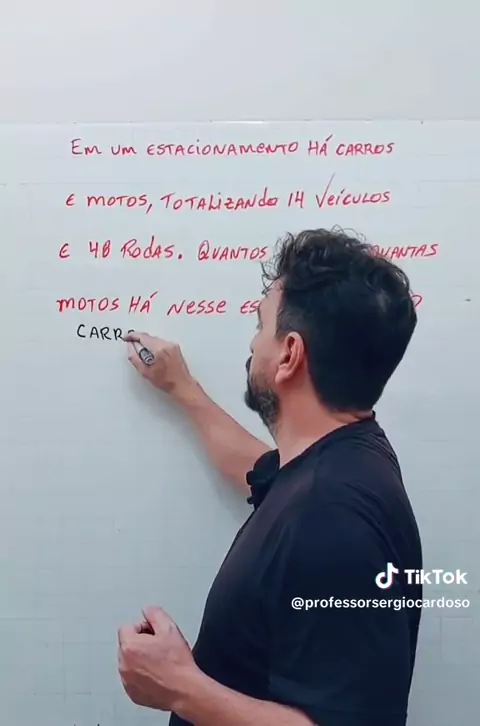 Em um ESTACIONAMENTO HÁ CARROS
E MOTOS, TOTALIZANDO 14 VEÍCULOS
E 48 RODAS. QUANTOS
MOTOS HÁ NESSE
CARRO
TikTok
@professorsergiocardoso